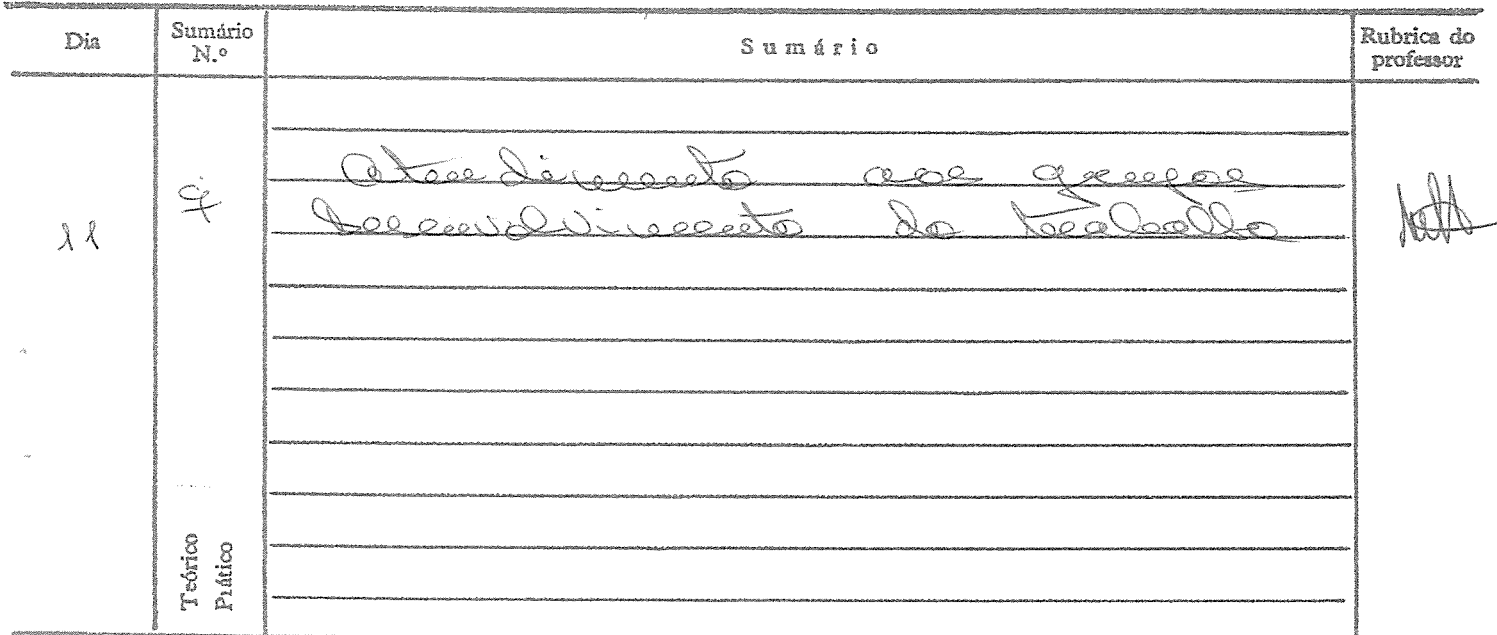 Dia Sumário N.º Sumário Rubrica do professor
Atendimento aos grupos
11 Desenvolvimento do trabalho
Teórico
Prático